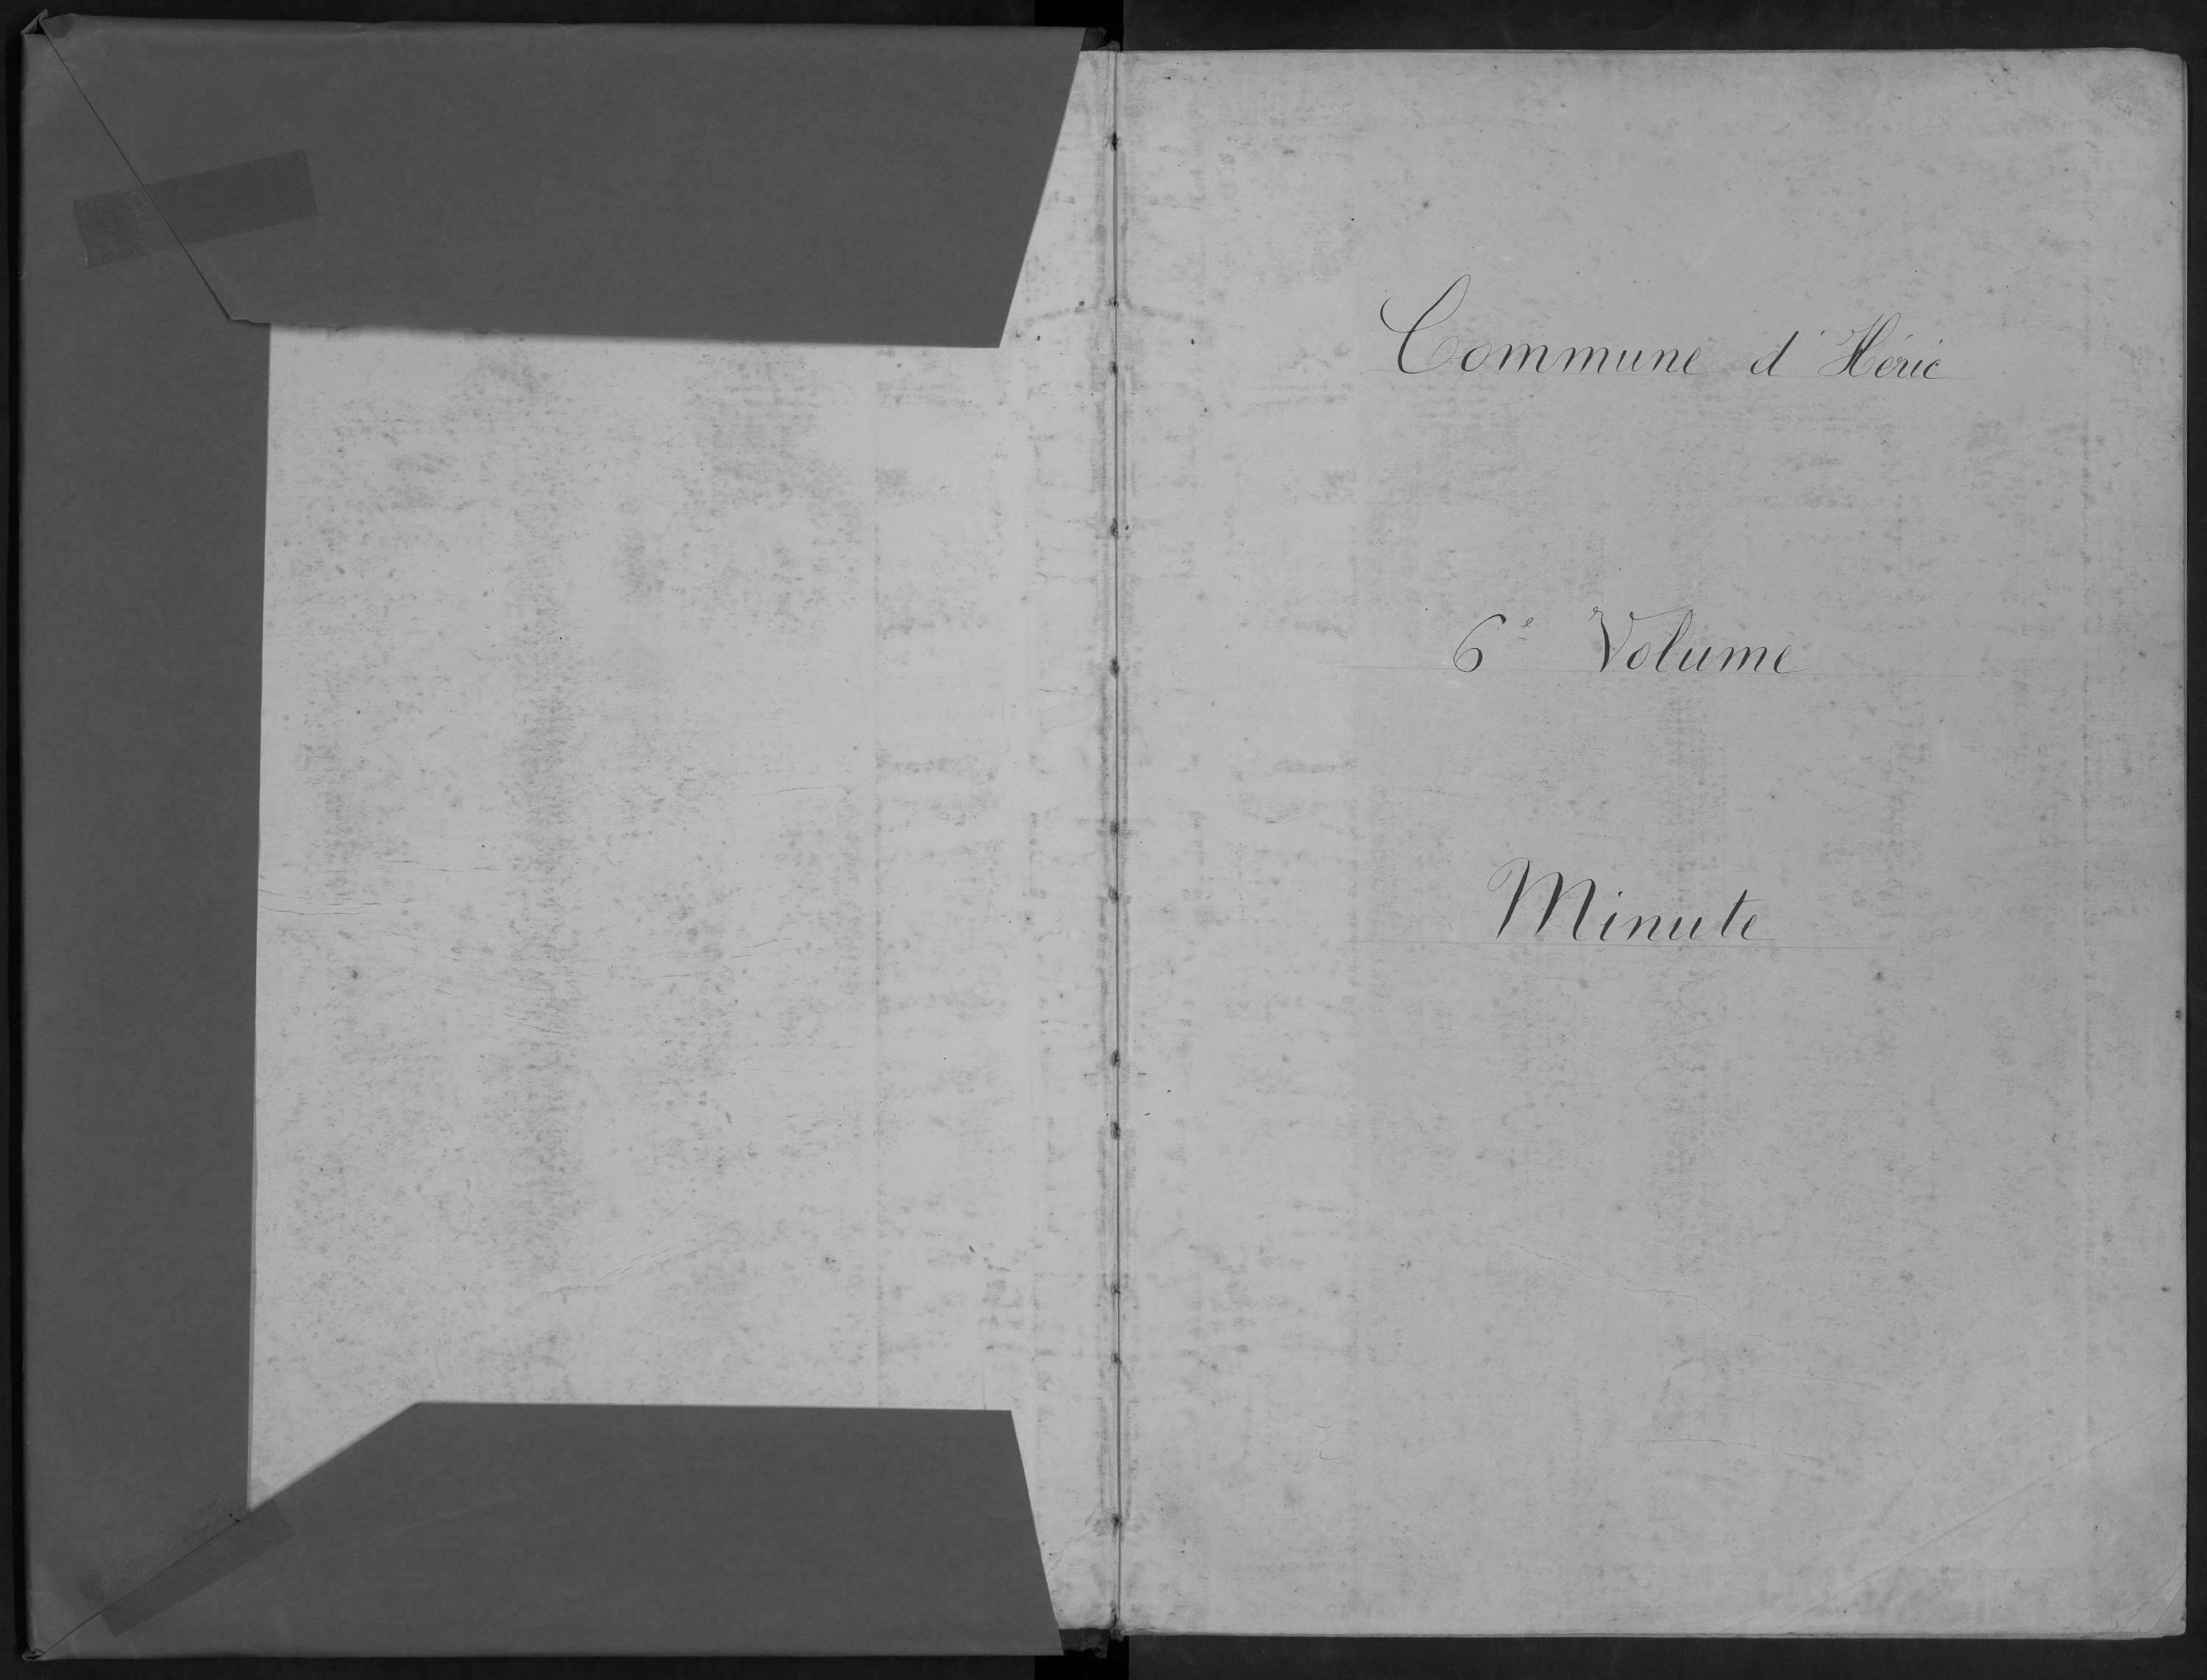 Commune d'Héric
6e Volume
Minute